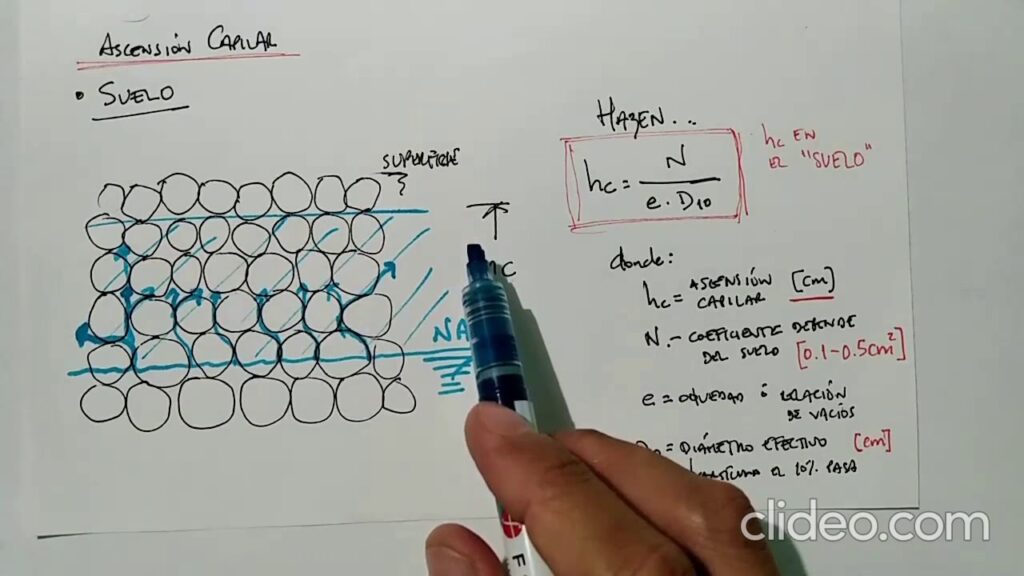 ASCENSIÓN CAPILAR
• SUELO
SUPERFICIE
hc
NA
HAZEN...
hc = N / e · D10
hc EN
EL "SUELO"
donde:
hc = ASCENSIÓN CAPILAR [cm]
N.- COEFICIENTE DEPENDE
DEL SUELO [0.1-0.5cm²]
e = OQUEDAD ó RELACIÓN
DE VACÍOS
= DIÁMETRO EFECTIVO [cm]
EL 10% PASA
clideo.com